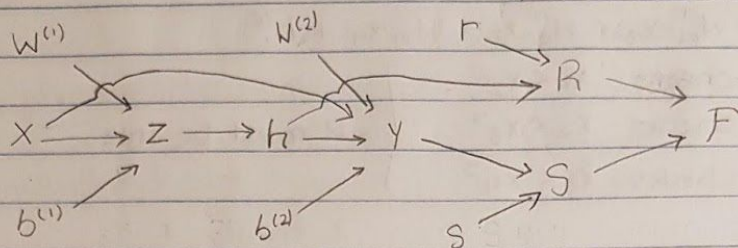 W(1) W(2) r
R
X Z h Y F
S
b(1) b(2) s